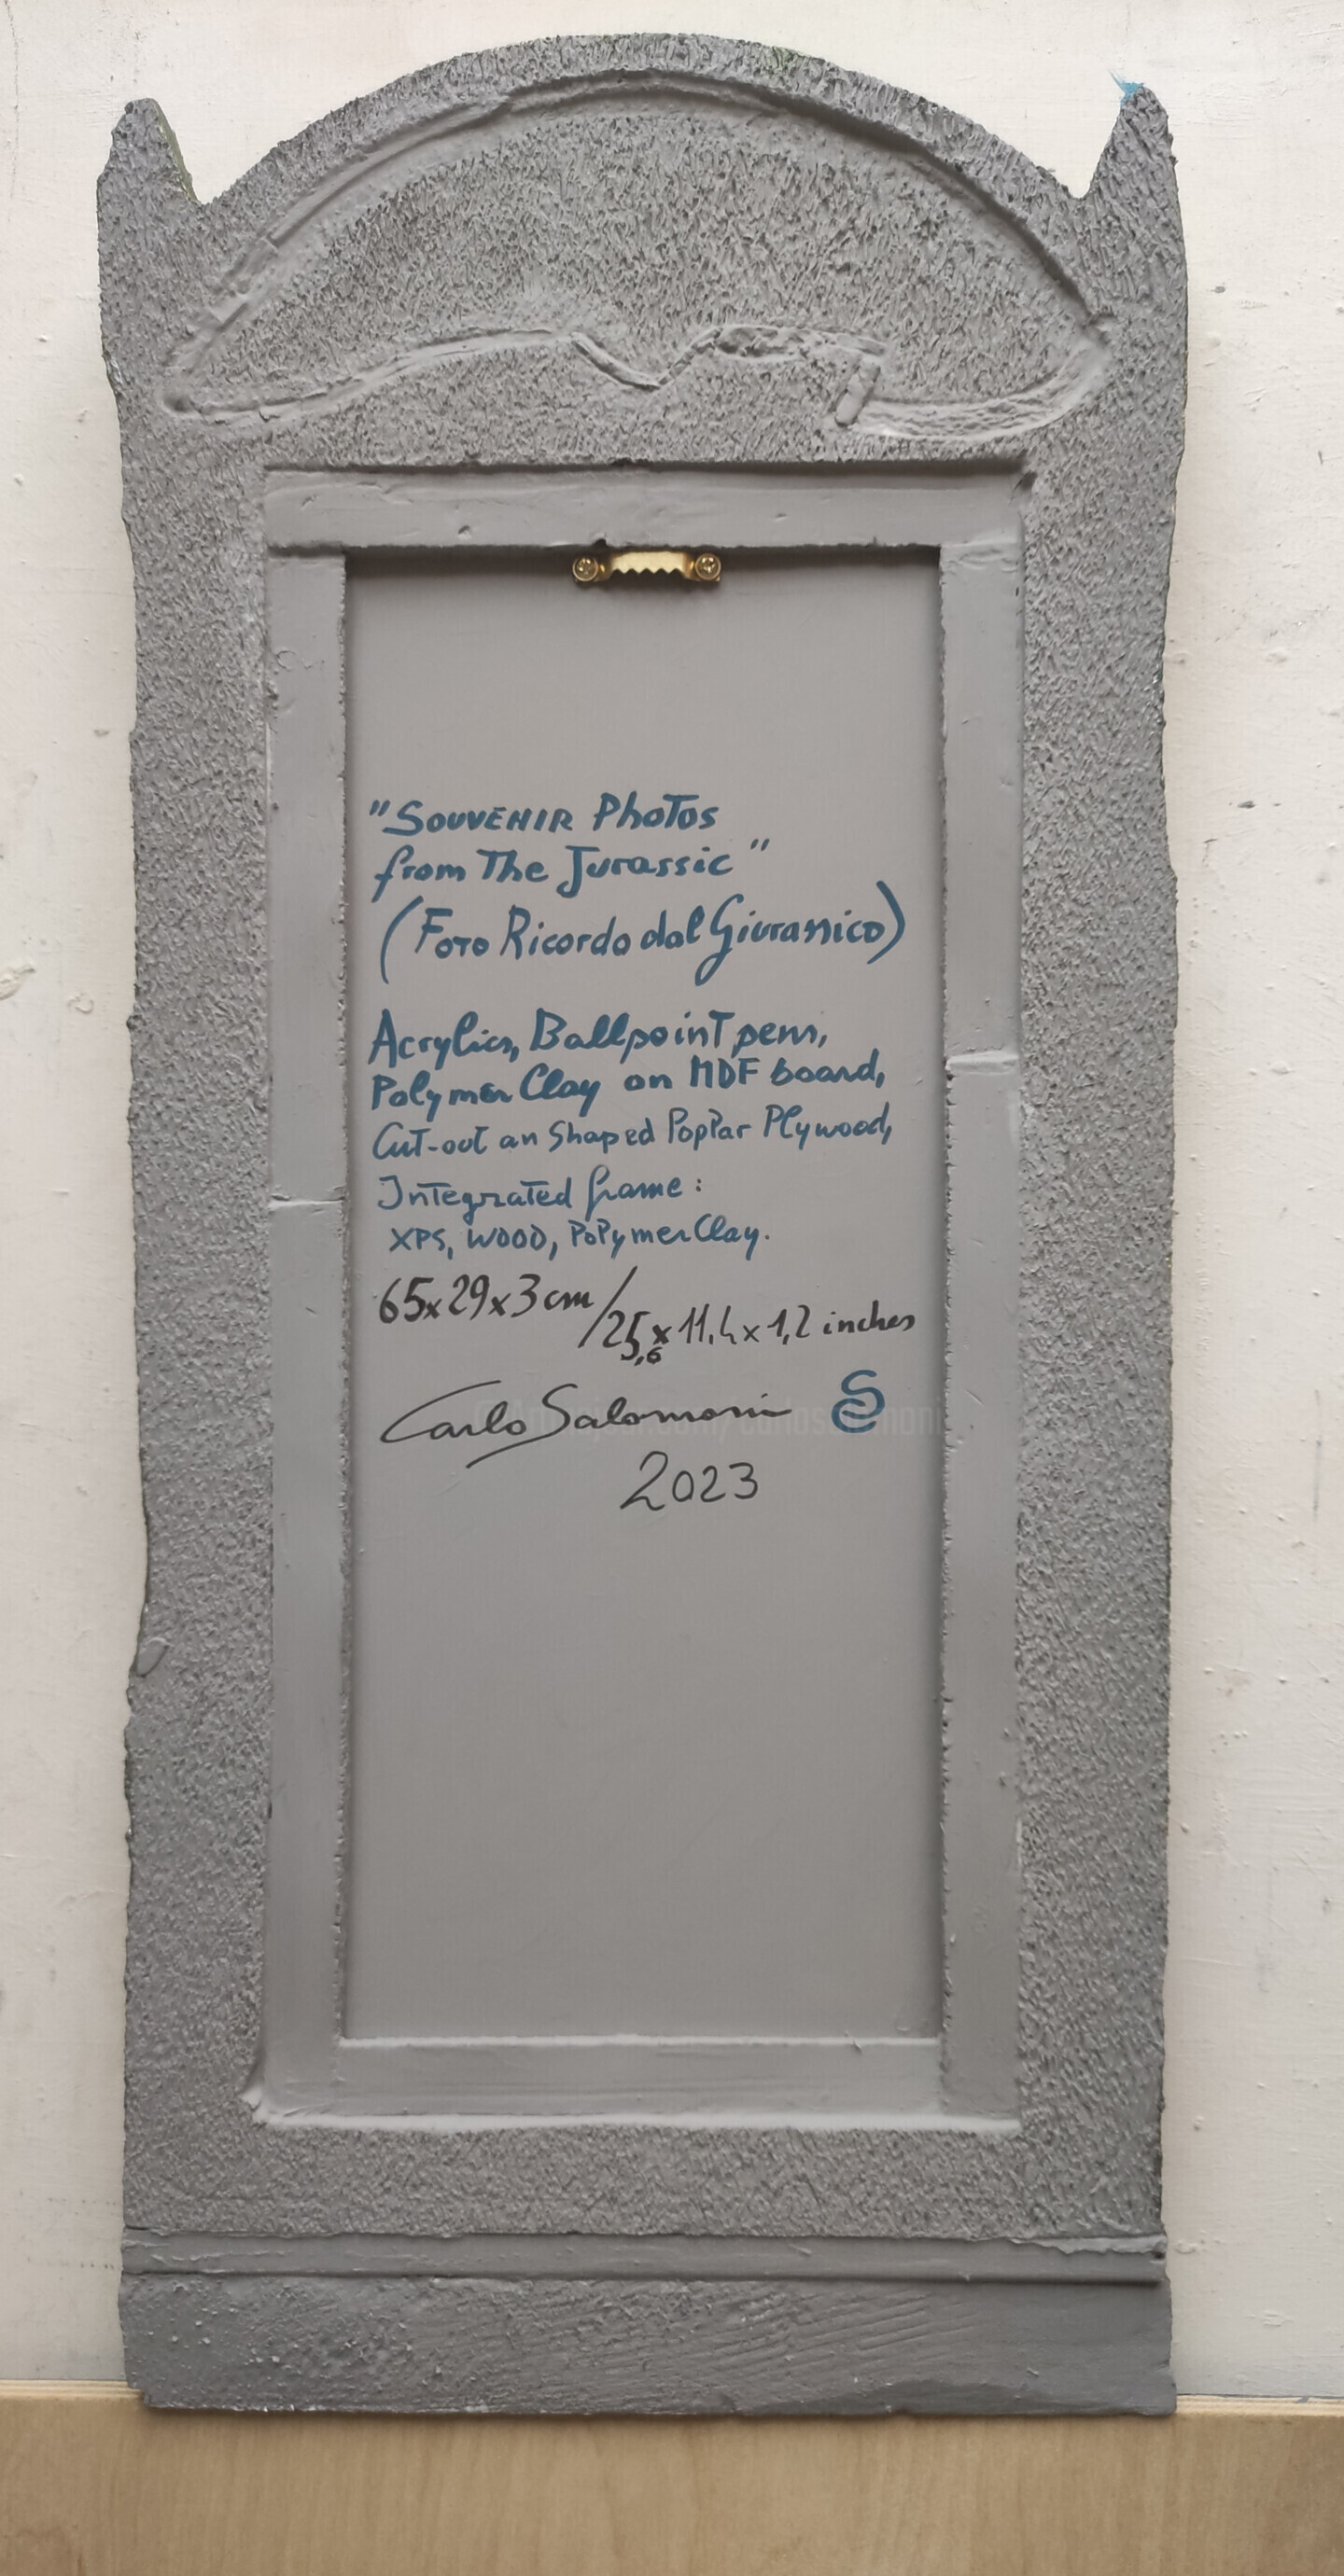 "Souvenir Photos
from The Jurassic"
(Foto Ricordo dal Giurassico)
Acrylics, Ballpoint pens,
Polymer Clay on MDF board,
Cut-out an Shaped Poplar Plywood,
Integrated frame:
XPS, Wood, Polymer Clay.
65x29x3 cm/25,6 x 11,4 x 1,2 inches
Carlo Salomoni
2023